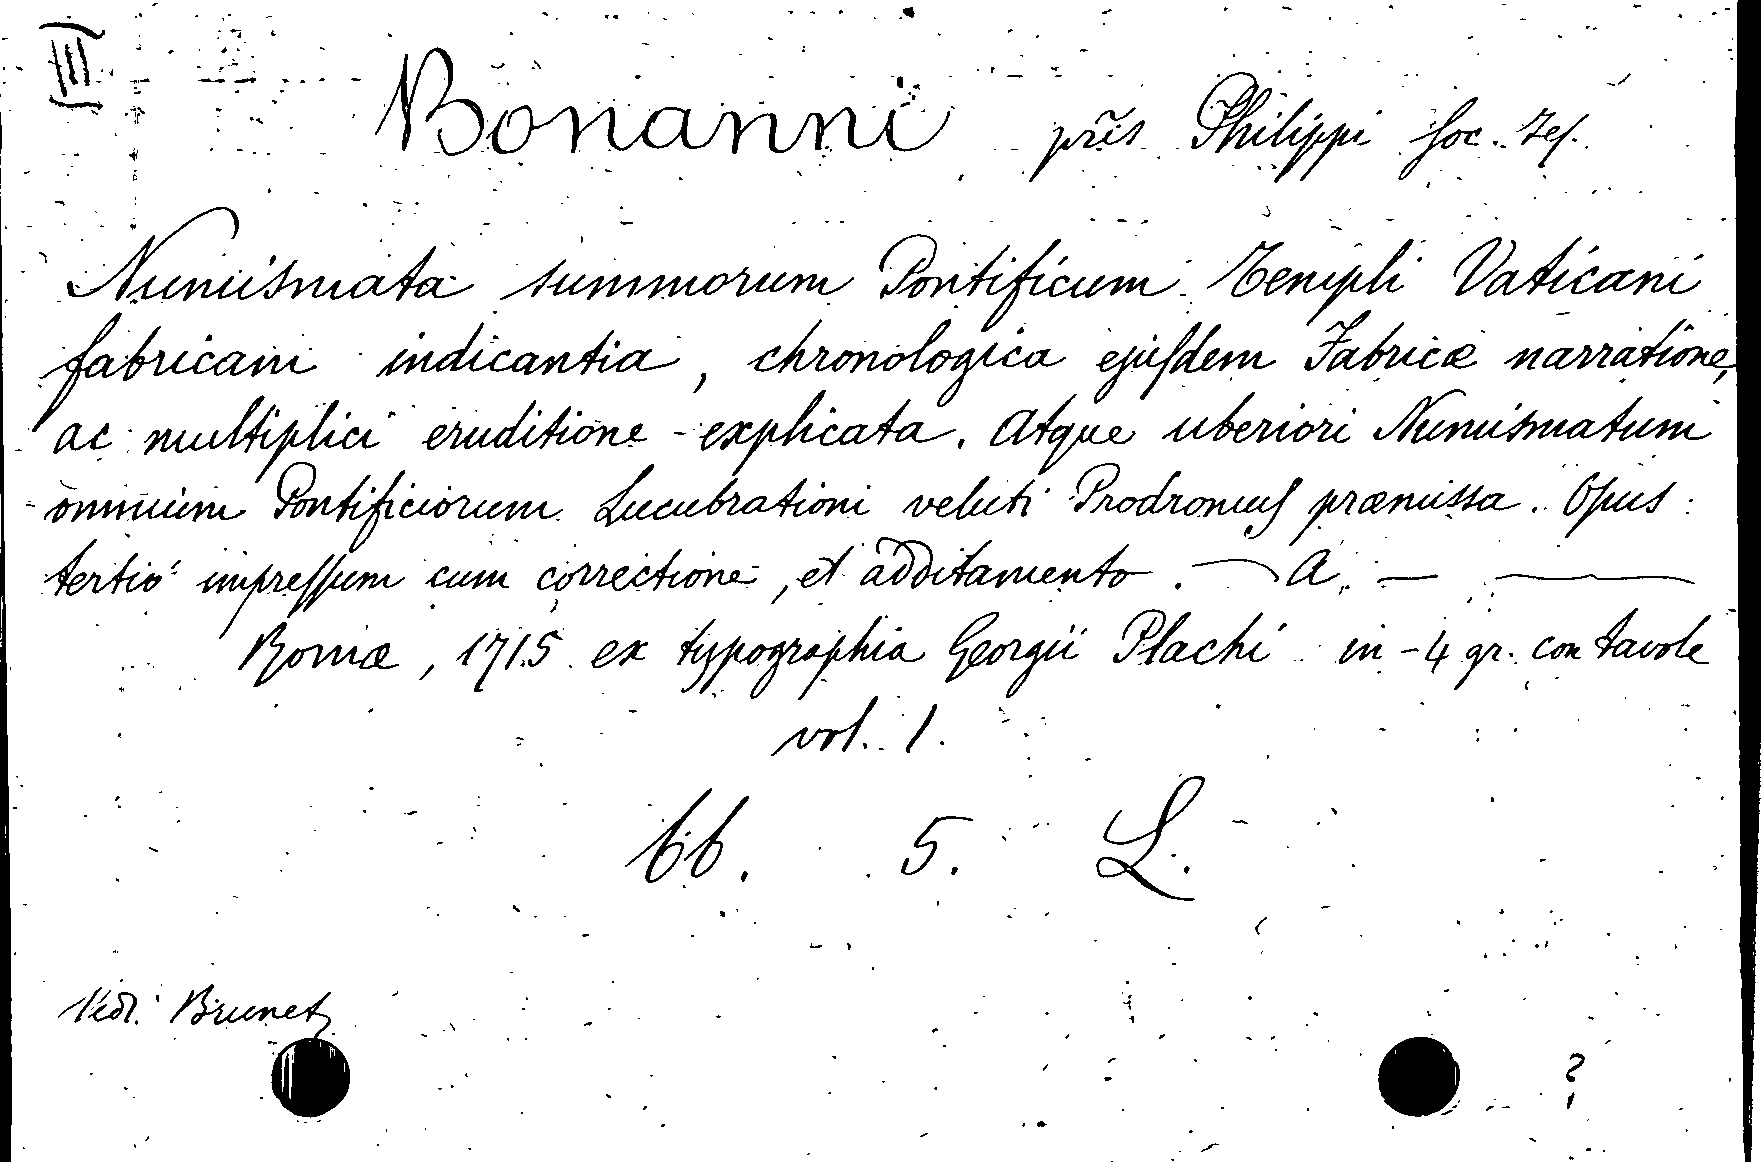 III
Bonanni pr̃is Philippi Soc. Jeſ.
Numismata summorum Pontificum Templi Vaticani
fabricam indicantia, chronologica ejuſdem Fabricæ narratione,
ac multiplici eruditione explicata. Atque uberiori Numismatum
omnium Pontificiorum Lucubrationi veluti Prodromuſ præmissa. Opus
tertiò impreſſum cum correctione, et additamento. — A. — —
Romæ, 1715 ex typographia Georgii Plachi in-4 gr. con tavole
vol. 1.
66. 5. L.
Vedi Brunet
?